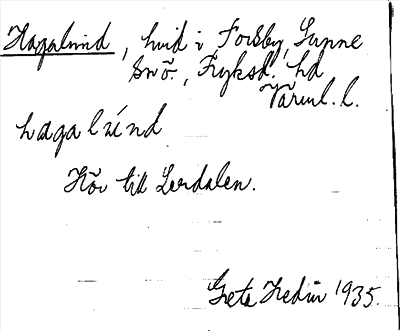 Hagalund, hmd i Forsby, Sunne
snö., Fryksd. hd
Värml. l.
hagalúnd
Hör till Lerdalen.
Greta Hedin 1935.